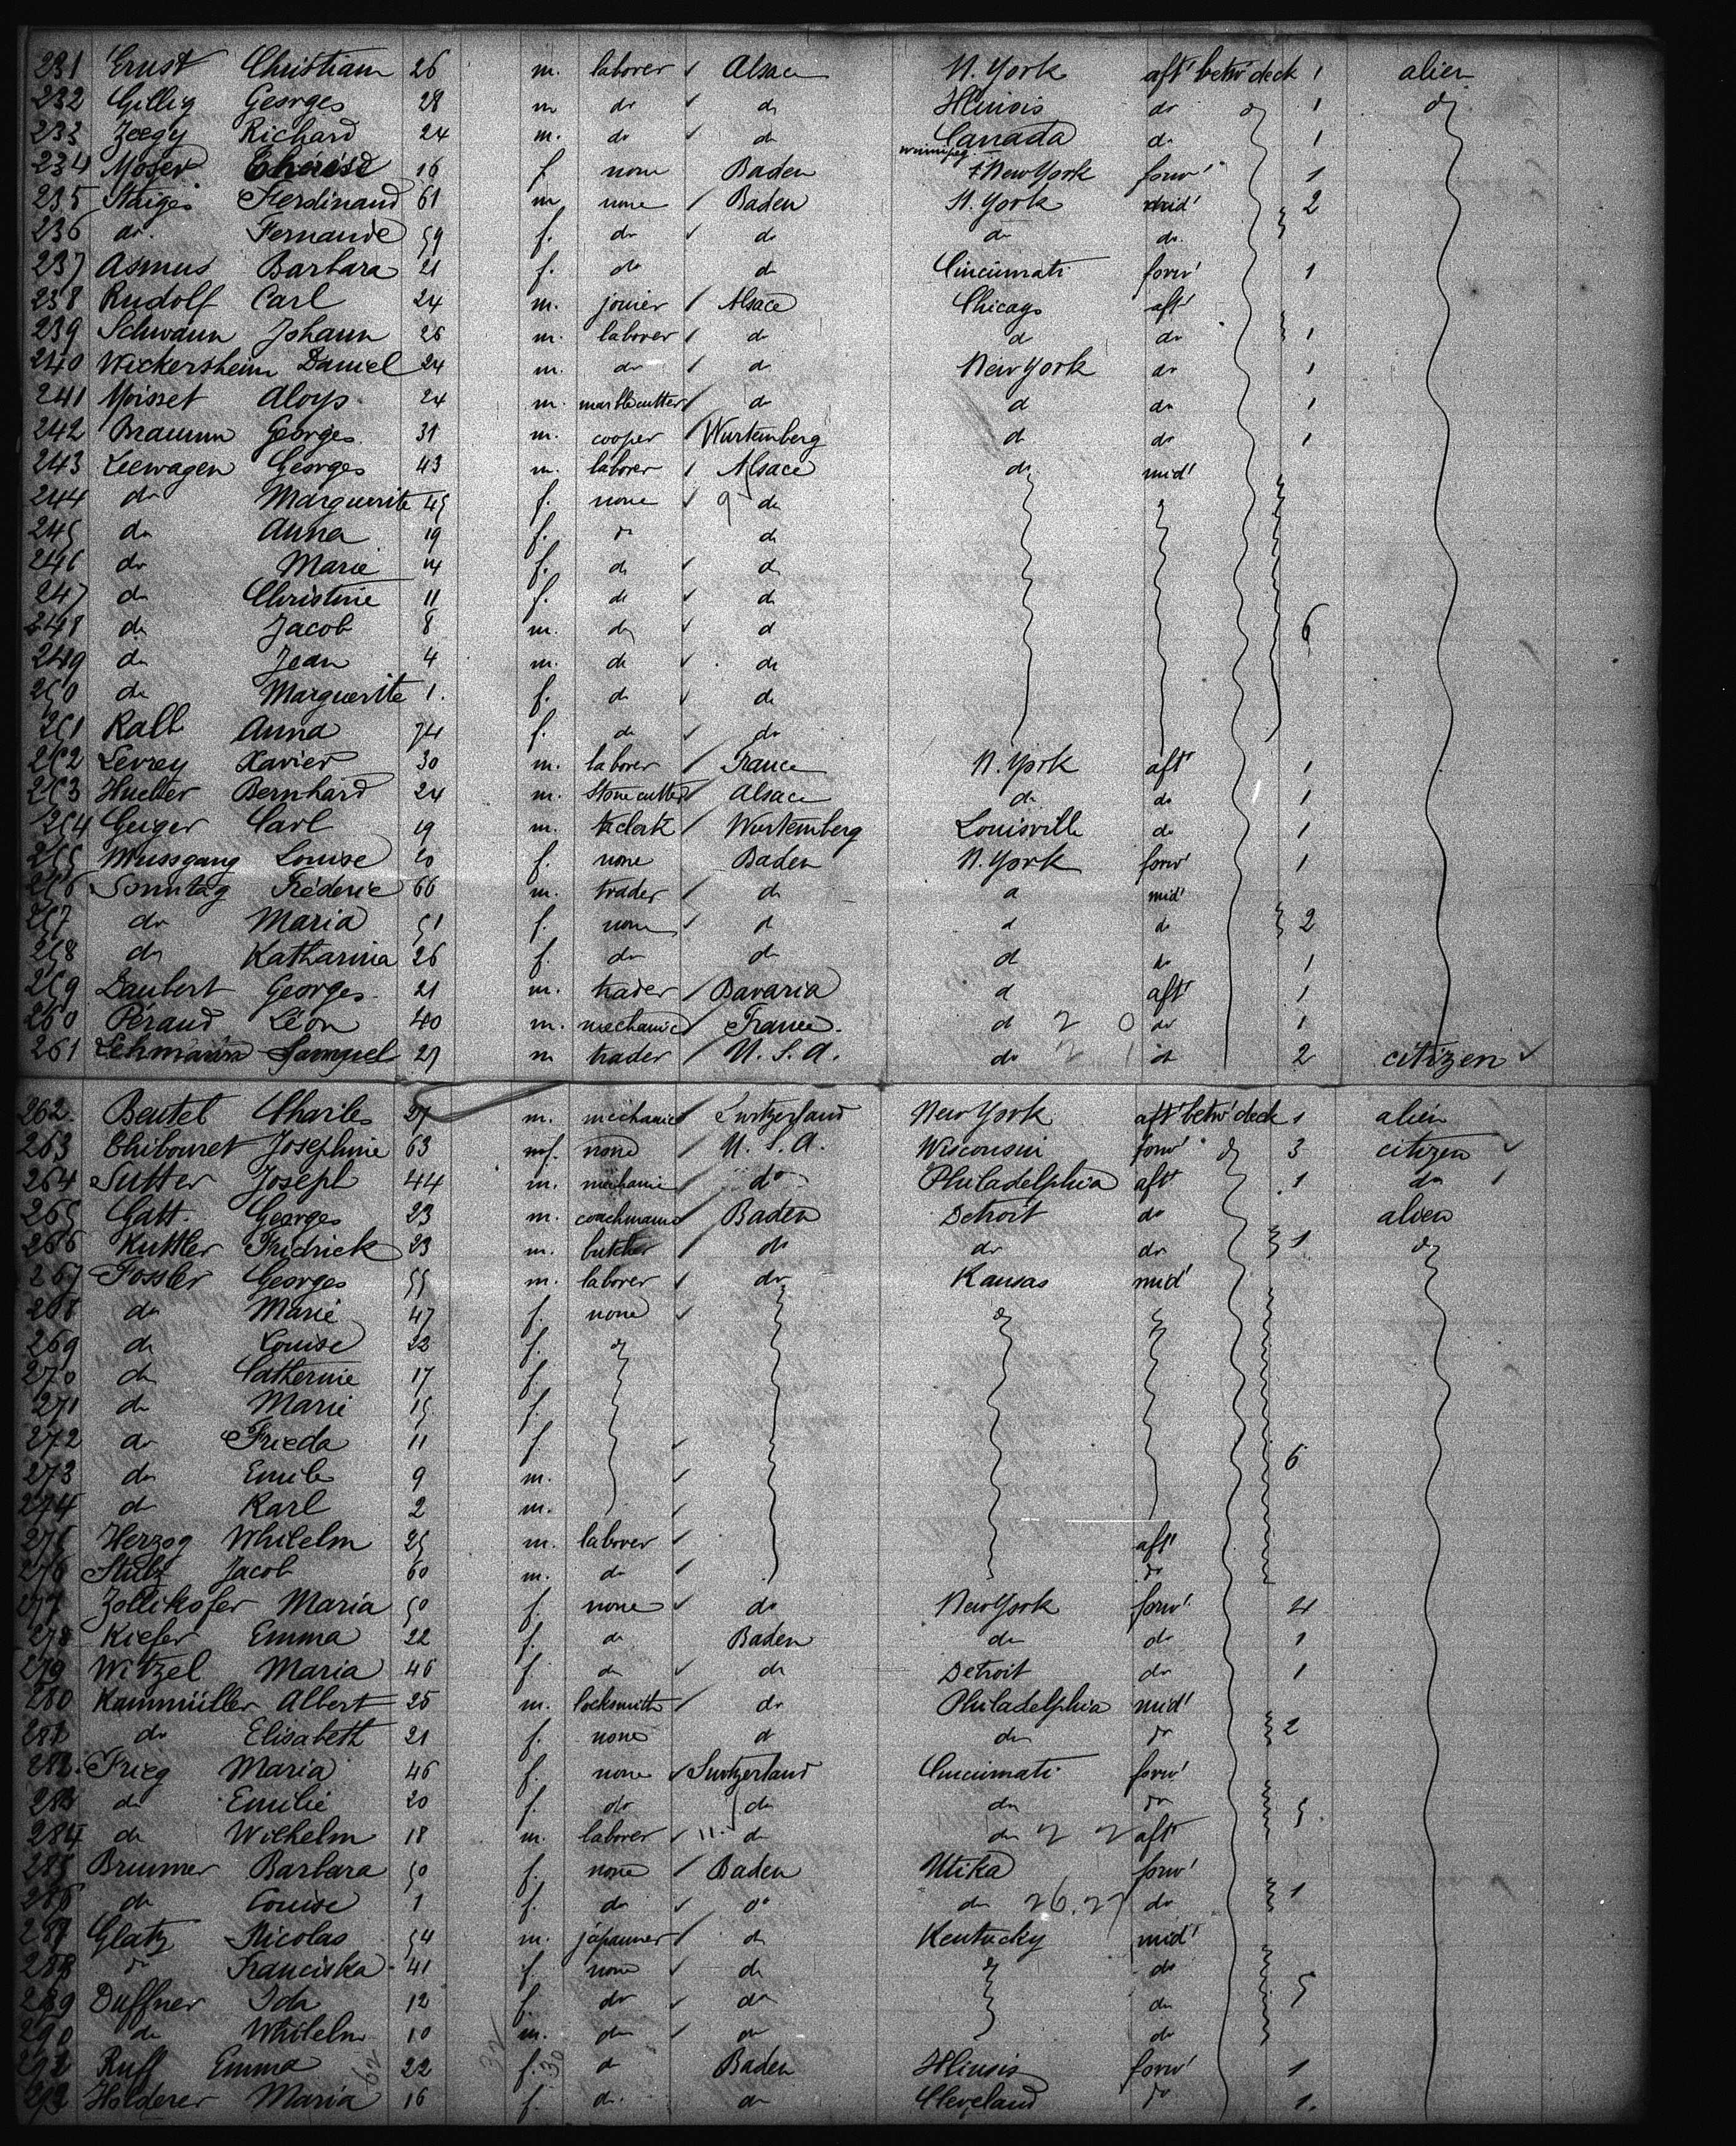 231 Ernst Christian 26 m. laborer Alsace N. York aft' betw' deck 1 alien
232 Gillig Georges 28 m do do Illinois do do 1 do
233 Zeegy Richard 24 m. do do Canada Winnipeg do 1
234 Moser 16 f none Baden New York forw' 1
235 Staiger Ferdinand 61 m none Baden N. York mid' 2
236 do. Fernande 59 f. do do do do.
237 Asmus Barbara 21 f. do do Cincinnati forw' 1
238 Rudolf Carl 24 m. joiner Alsace Chicago aft'
239 Schwann Johann 26 m. laborer do do do 1
240 Wickersheim Daniel 24 m. do do New York do 1
241 Moisset Aloys 24 m. marble cutter do do do 1
242 Braunn Georges 31 m. cooper Wurtemberg do do 1
243 Leewagen Georges 43 m. laborer Alsace do mid'
244 do Marguerite 45 f. none 9 do
245 do Anna 19 f. do do
246 do Marie 14 f. do do
247 do Christine 11 f. do do
248 do Jacob 8 m. do do 6
249 do Jean 4 m. do do
250 do Marguerite 1. f. do do
251 Kalb Anna 74 f. do do
252 Levrey Xavier 30 m. laborer France N. York aft' 1
253 Huelter Bernhard 24 m. Stone cutter Alsace do do 1
254 Geiger Carl 19 m. clerk Wurtemberg Louisville do 1
255 Mussgang Louise 20 f. none Baden N. York forw' 1
256 Sonntag Fréderic 66 m. trader do do mid'
257 do Maria 51 f. none do do do 2
258 do Katharina 26 f. do do do do 1
259 Laubert Georges 21 m. trader Bavaria do aft' 1
260 Péraud Léon 40 m. mechanic France. do 2 0 do 1
261 Lehmann Samuel 27 m trader U. S. A. do 2 1 do 2 citizen
262. Beutel Charles 27 m. mechanic Switzerland New York aft' betw' deck 1 alien
263 Thibouret Josephine 63 f. none U. S. A. Wisconsin forw' do 3 citizen
264 Sutter Joseph 44 m. mechanic do Philadelphia aft' 1 do 1
265 Gatt. Georges 23 m. coachman Baden Detroit do alien
266 Kuttler Fridrick 23 m. butcher do do do 1 do
267 Fossler Georges 55 m. laborer do Kansas mid'
268 do Marie 47 f. none do
269 do Louise 22 f. do
270 do Catherine 17 f.
271 do Marie 15 f.
272 do Frieda 11 f. 6
273 do Emile 9 m.
274 do Karl 2 m.
275 Herzog Whilelm 25 m. laborer aft'
276 Stulz Jacob 60 m. do do
277 Zollikofer Maria 50 f. none do New York forw' 4
278 Kiefer Emma 22 f. do Baden do do 1
279 Witzel Maria 46 f. do do Detroit do 1
280 Kammüller Albert 25 m. locksmith do Philadelphia mid'
281 do Elisabeth 21 f. none do do do 2
282. Frieg Maria 46 f. none Switzerland Cincinnati forw'
283 do Emilie 20 f. do do do do 5
284 do Wilhelm 18 m. laborer 11. do do 2 2 aft'
285 Brunner Barbara 50 f. none Baden Utika forw'
286 do Louise 1 f. do do do 26.27 do 1
287 Glatz Nicolas 54 m. japanner do Kentucky mid'
288 do Franciska 41 f. none do do do
289 Duffner Ida 12 f. do do do 5
290 do Whilelm 10 m. do do do
291 Ruff Emma 22 f. do Baden Illinois forw' 1
292 Holderer Maria 16 f. do. do Cleveland do 1.